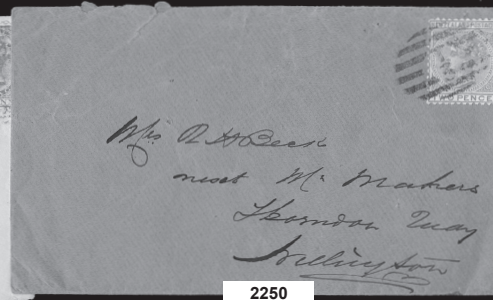 TWO PENCE
Mrs R H Beck
next Mr Mahers
Thorndon Quay
Wellington
2250